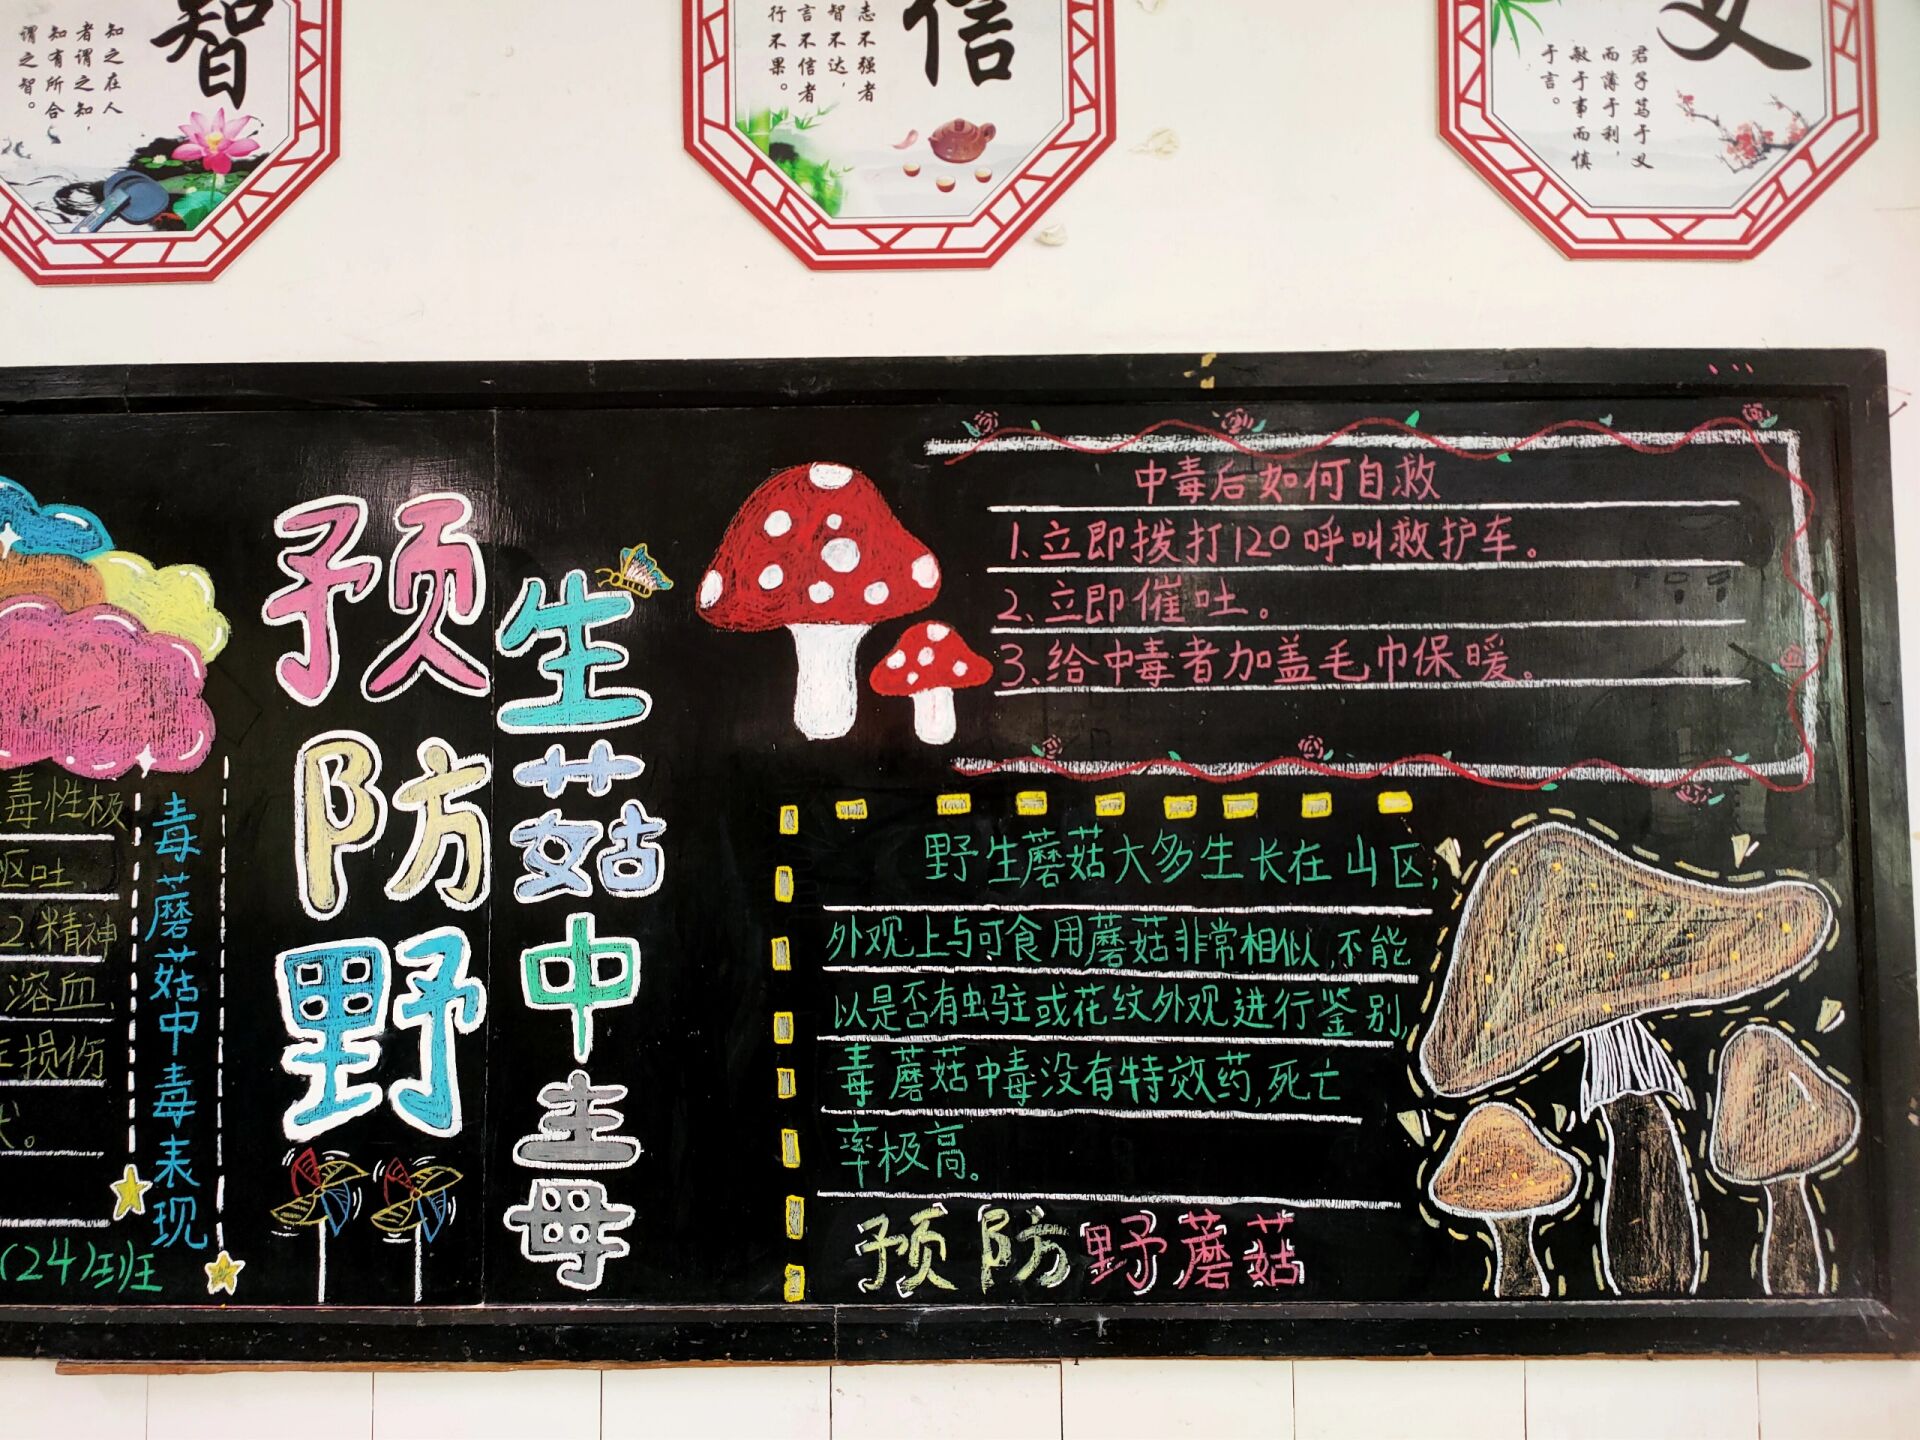 智
知之在人
者谓之知，
知有所合
谓之智。
信
志不强者
智不达，
言不信者
行不果。
义
君子笃于义
而薄于利，
敏于事而慎
于言。
毒性极
呕吐、
2.精神
溶血、
损伤
。
(24)班
毒蘑菇中毒表现
预防野
生菇中主母
中毒后如何自救
1.立即拨打120呼叫救护车。
2.立即催吐。
3.给中毒者加盖毛巾保暖。
野生蘑菇大多生长在山区,
外观上与可食用蘑菇非常相似,不能
以是否有虫驻或花纹外观进行鉴别,
毒蘑菇中毒没有特效药,死亡
率极高。
预防野蘑菇